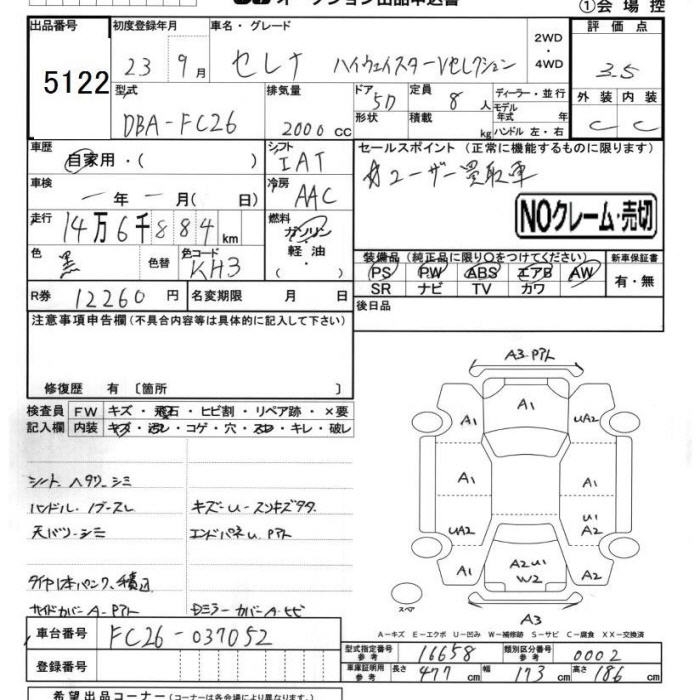 オークション出品申込書
①会場控
出品番号 5122
初度登録年月 23 9月
車名・グレード セレナ ハイウェイスターVセレクション
2WD・4WD
評価点 3.5
型式 DBA-FC26
排気量 2000 cc
ドア 5D
形状
定員 8 人
積載 kg
ディーラー・並行
モデル年式 年
ハンドル 左・右
外装 C 内装 C
車歴 自家用・( )
シフト IAT
セールスポイント (正常に機能するものに限ります)
☆ユーザー買取車
車検 - 年 - 月( 日)
冷房 AAC
NOクレーム・売切
走行 14万6千884km
燃料 ガソリン・軽油・
色 黒 色替 色コード KH3
装備品 (純正品に限り○をつけてください)
新車保証書
PS PW ABS エアB AW
有・無
SR ナビ TV カワ
R券 12260円
名変期限 月 日
後日品
注意事項申告欄(不具合内容等は具体的に記入して下さい)
修復歴 有 〔箇所 〕
検査員記入欄
FW キズ・飛石・ヒビ割・リペア跡・×要
内装 キズ・汚レ・コゲ・穴・スレ・キレ・破レ
シート ヘタリ-シミ
ハンドル・ノブ-スレ
キズ-U-スリキズタタ
天バリ-シミ
エンドパネU.Pアト
タイヤ1本パンク、積込
サイドカバーA-Pアト
Dミラーカバー A-ヒビ
A3.Pアト
A1
A1
UA2
A1
A1
UA2
U1
A2
A1
A2U1
W2
A2
A3
スペア
A-キズ E-エクボ U-凹み W-補修跡 S-サビ C-腐食 XX-交換済
車台番号 FC26-037052
登録番号
型式指定番号 参考 16658
類別区分番号 参考 0002
車庫証明用 参考 長さ 477 cm 幅 173 cm 高さ 186 cm
希望出品コーナー (コーナーは各会場により異なります。)